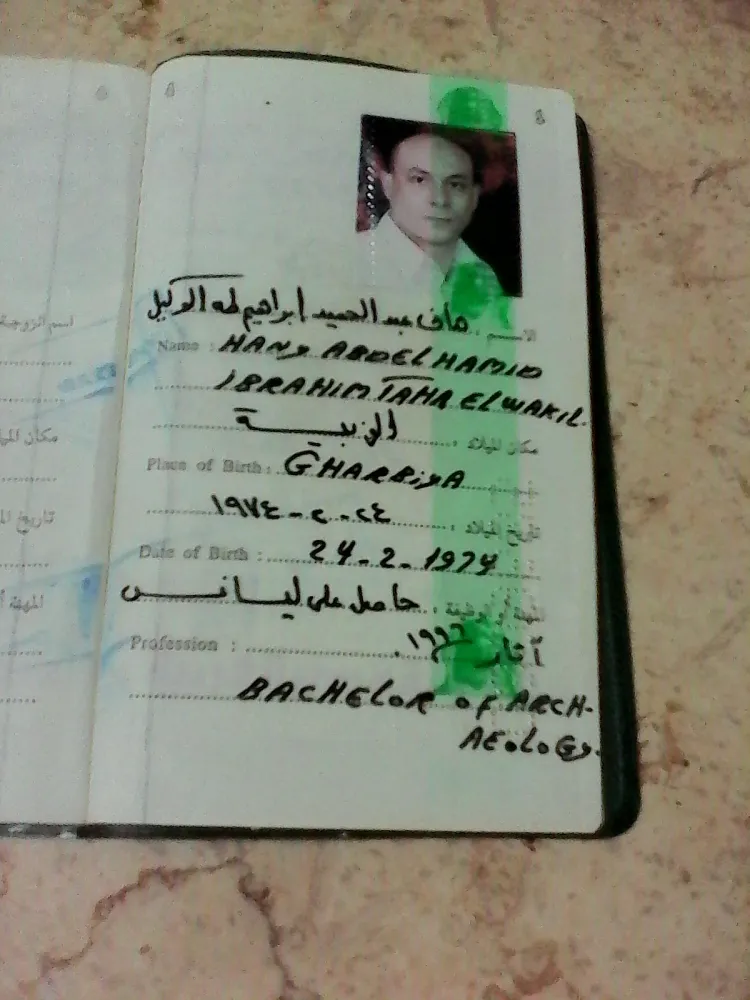 ٤
الاسم : هانى عبد الحميد ابراهيم طه الوكيل
Name : HANY ABDELHAMID
IBRAHIM TAHA ELWAKIL.
مكان الميلاد : الغربيـــــة
Place of Birth : GHARBIYA
تاريخ الميلاد : ٢٤-٢-١٩٧٤
Date of Birth : 24-2-1974
المهنة أو الوظيفة : حاصل على ليسانس
Profession : آثار ١٩٩٦.
BACHELOR OF ARCH-
AEOLOGY.
اسم الزوجة
مكان الميلا
تاريخ الم
المهنة أ